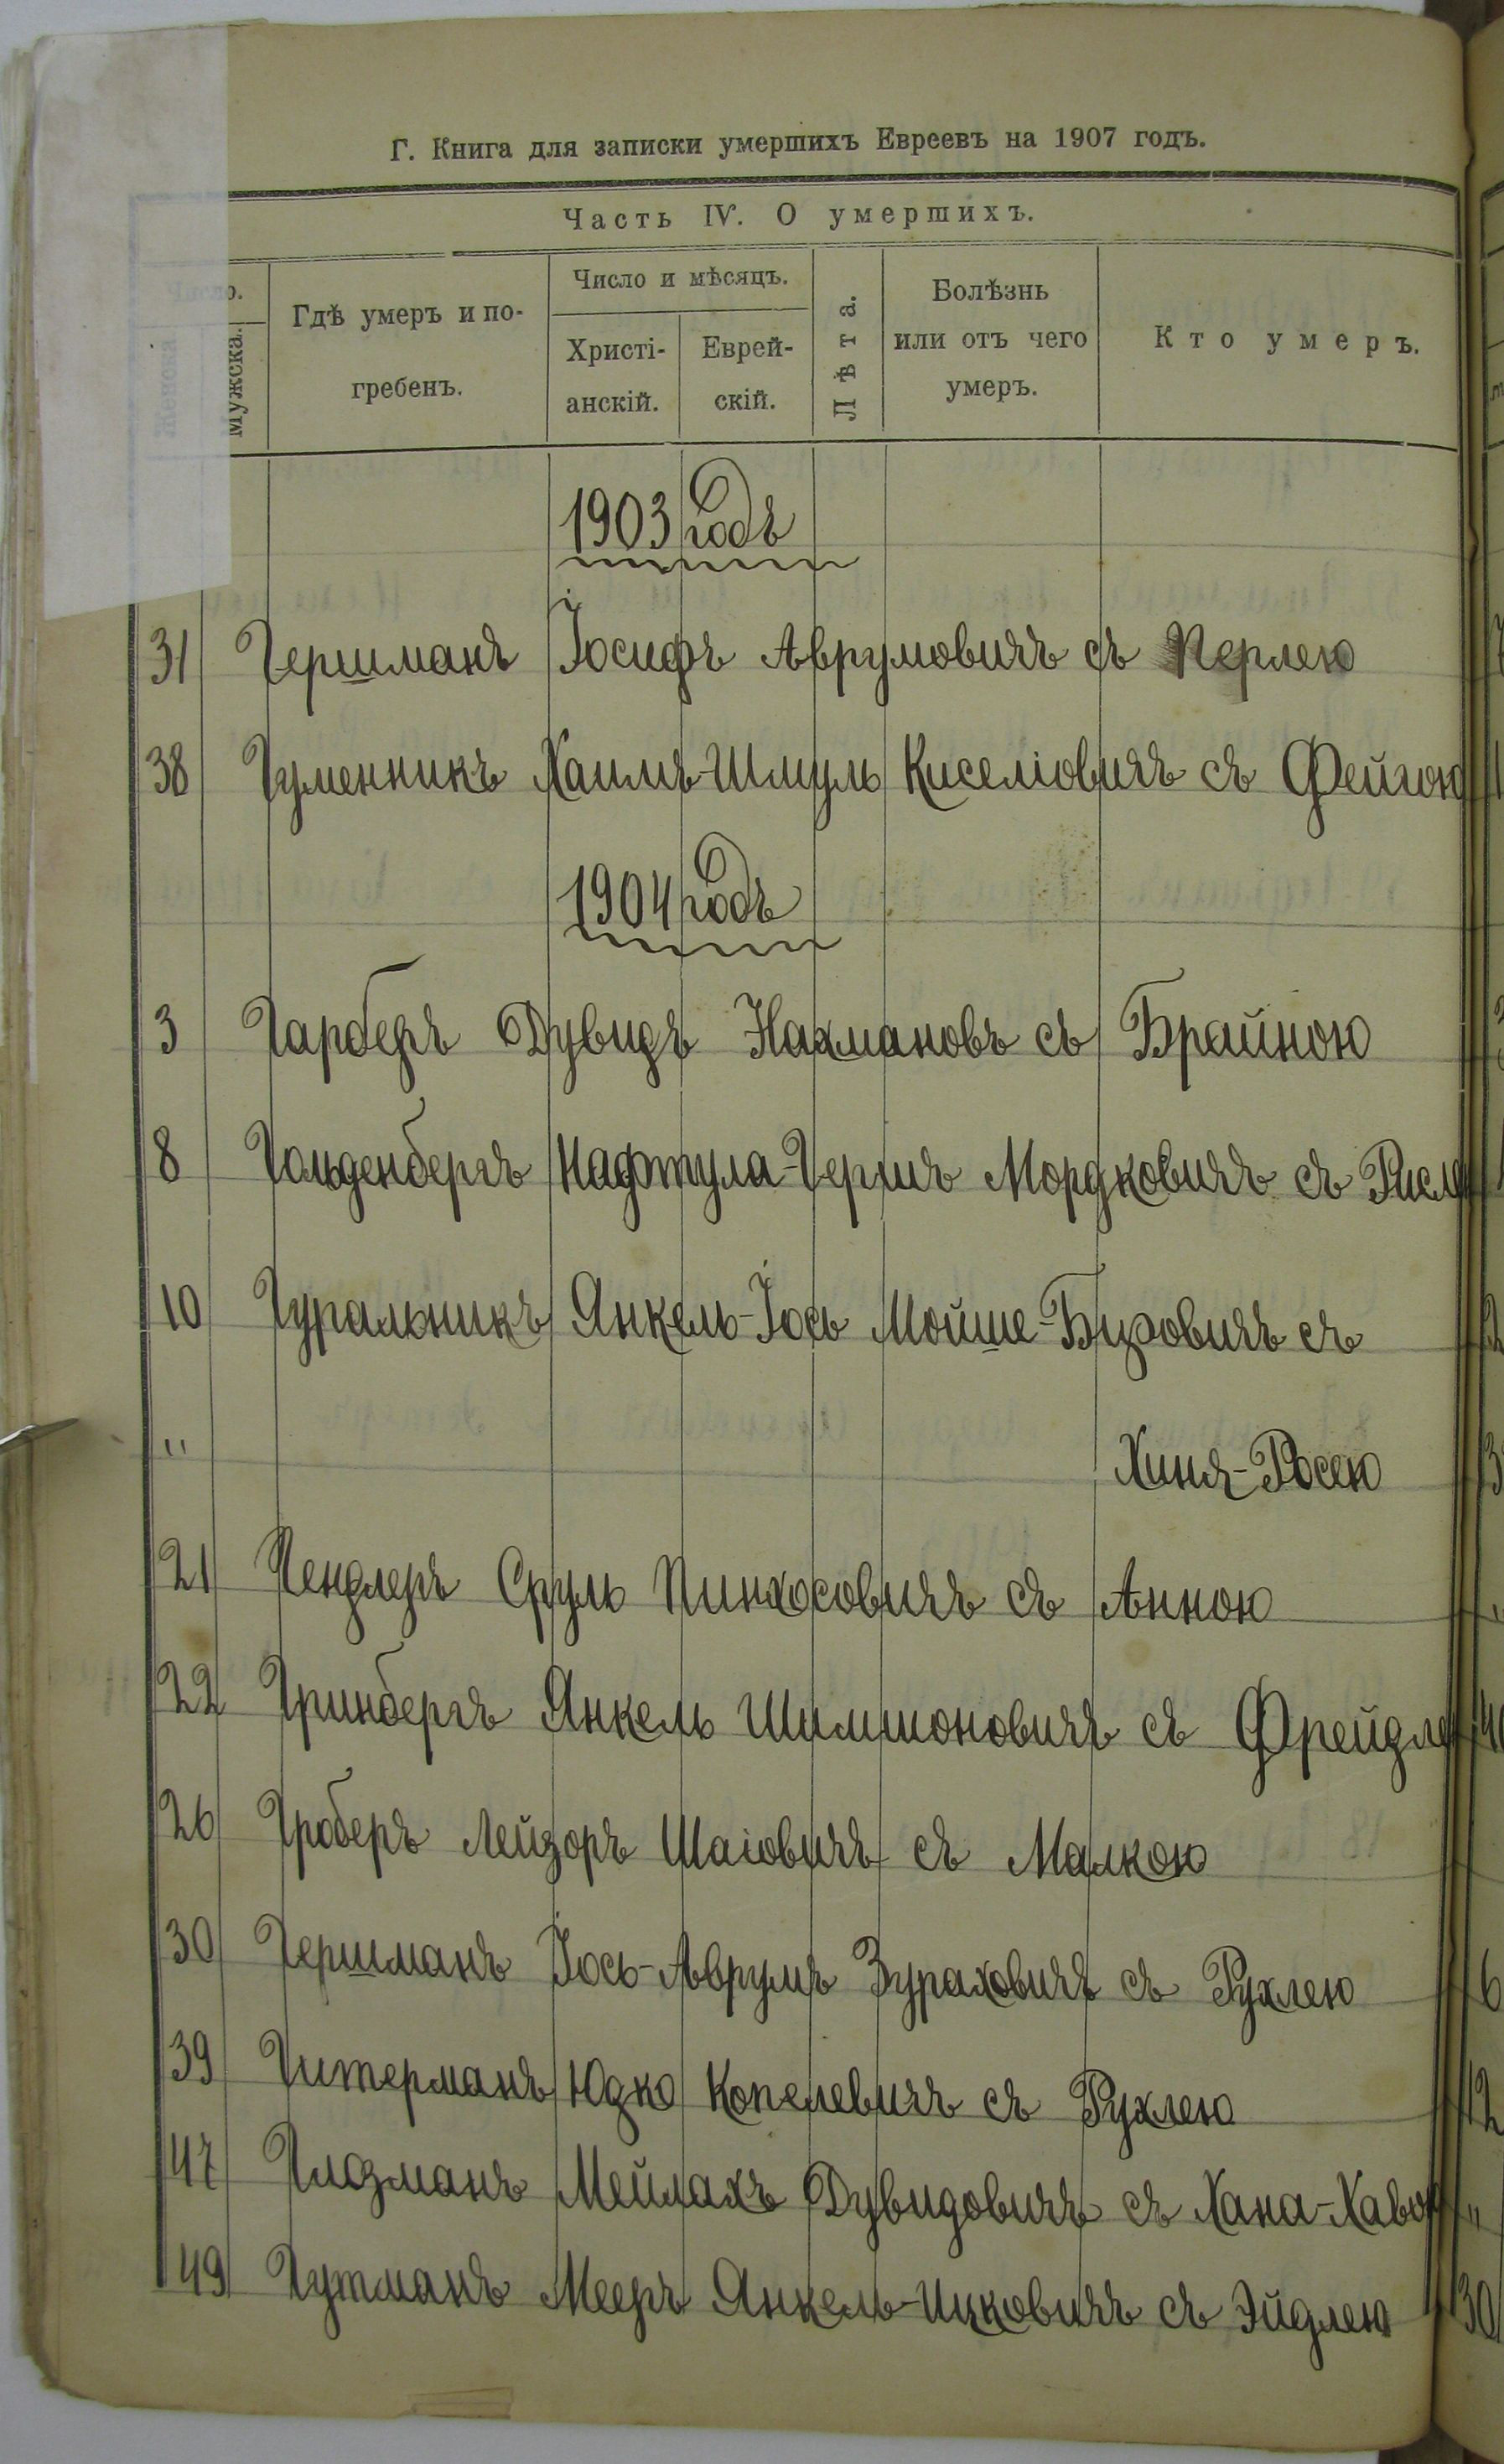 Г. Книга для записки умершихъ Евреевъ на 1907 годъ.
Часть IV. О умершихъ.
мужска.
Гдѣ умеръ и по-
гребенъ.
Число и мѣсяцъ.
Христі-
анскій.
Еврей-
скій.
Лѣта.
Болѣзнь
или отъ чего
умеръ.
Кто умеръ.
1903 годъ
31 Гершманъ Іосифъ Аврумовичъ съ Перлею
38 Гуменникъ Хаимъ-Шмуль Киселіовичъ съ Фейгою
1904 годъ
3 Гарберъ Дувидъ Нахмановъ съ Брайною
8 Гольденбергъ Нафтула-Гершъ Мордковичъ съ
10 Гуральникъ Янкель-Іось Мойше-Бизовичъ съ
" Хиня-Росею
21 Гендлеръ Сруль Пинхосовичъ съ Анною
22 Гринбергъ Янкель Шимшоновичъ съ
26 Гроберъ Лейзоръ Шаіовичъ съ Малкою
30 Гершманъ Іось-Аврумъ Зураховичъ съ Рухлею
39 Гитерманъ Юдко Копелевичъ съ Рухлею
47 Глозманъ Мейлахъ Дувидовичъ съ Хана-Хавою
49 Гутманъ Мееръ Янкель-Ицковичъ съ Эйдлею